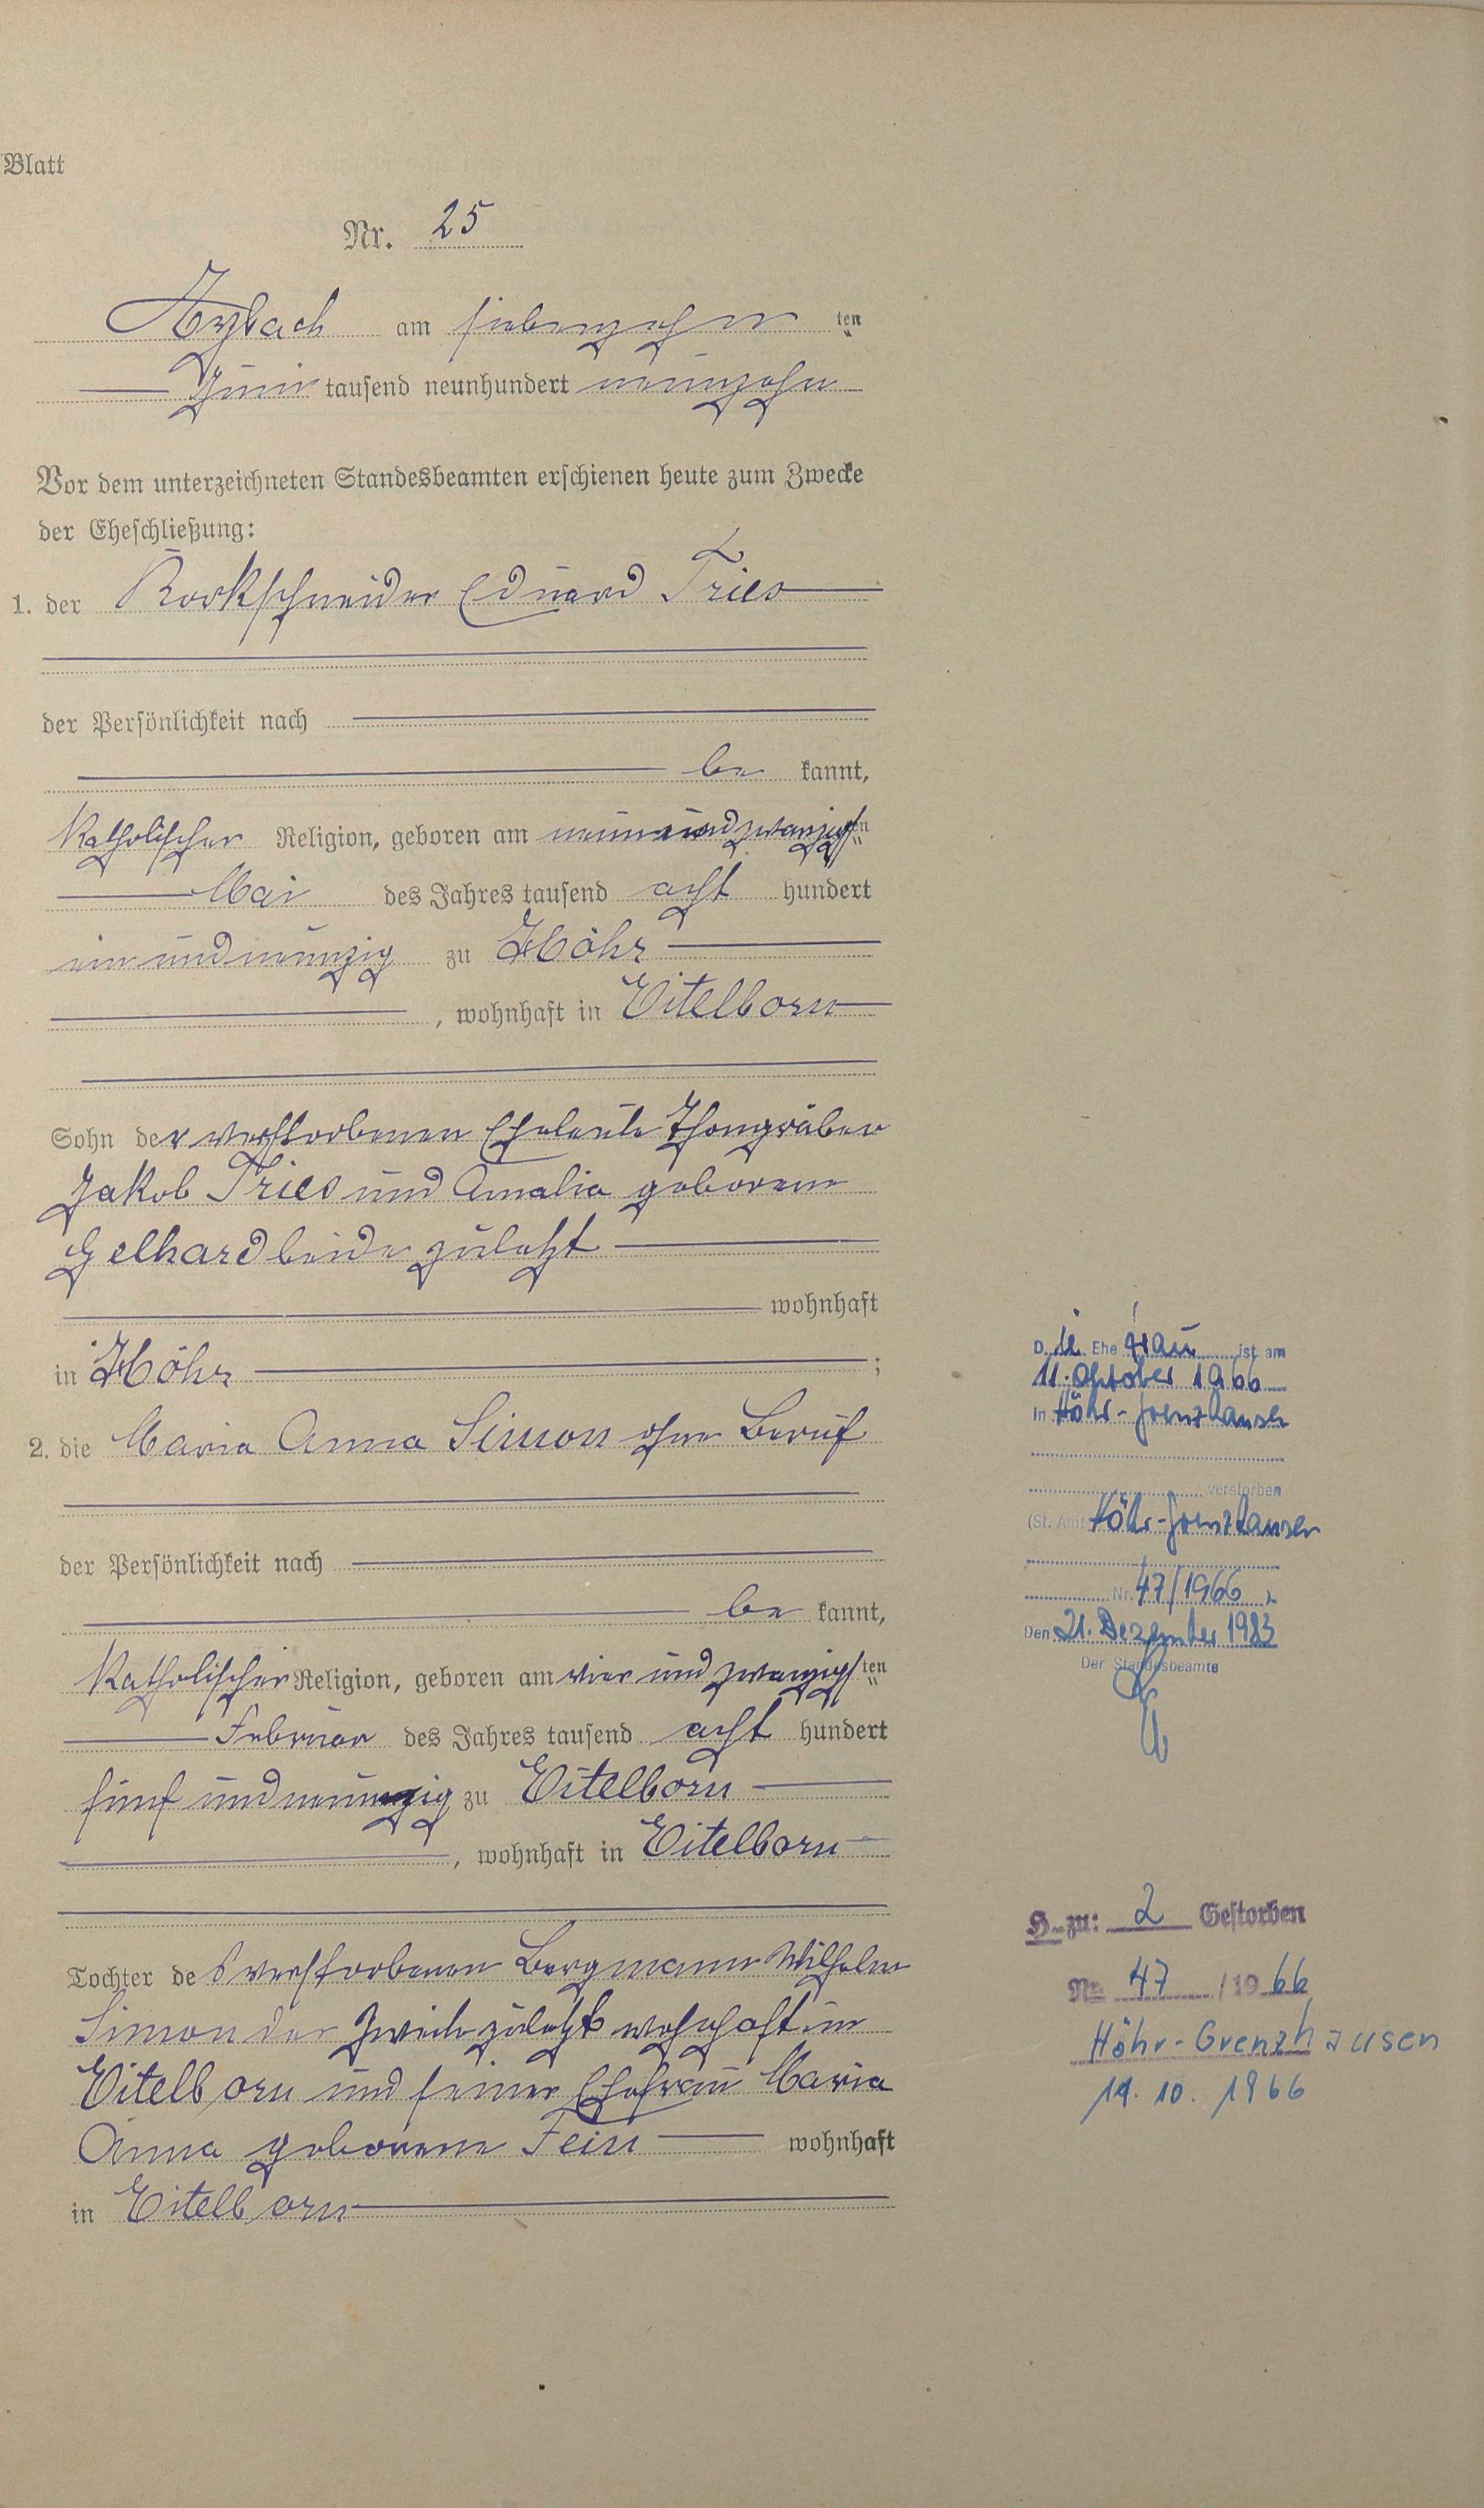 Blatt
Nr. 25
Arzbach am siebenzehn ten
Juni tausend neunhundert neunzehn
Vor dem unterzeichneten Standesbeamten erschienen heute zum Zwecke
der Eheschließung:
1. der Rockschneider Eduard Fries
der Persönlichkeit nach
be kannt,
katholischer Religion, geboren am neunundzwanzigsten
Mai des Jahres tausend acht hundert
ein und neunzig zu Höhr
, wohnhaft in Eitelborn
Sohn der verstorbenen Eheleute Thongräber
Jakob Fries und Amalia geborene
Gelhard beide zuletzt
wohnhaft
in Höhr ;
2. die Maria Anna Simon ohne Beruf
der Persönlichkeit nach
be kannt,
katholischer Religion, geboren am vier und zwanzigsten
Februar des Jahres tausend acht hundert
fünf und neunzig zu Eitelborn
, wohnhaft in Eitelborn
Tochter des verstorbenen Bergmann Wilhelm
Simon der Zweite zuletzt wohnhaft in
Eitelborn und seiner Ehefrau Maria
Anna geborene Fein wohnhaft
in Eitelborn
Die Ehefrau ist am
11. Oktober 1966
in Höhr-Grenzhausen
verstorben
(St. Amt Höhr-Grenzhausen
Nr. 47/1966
Den 21. Dezember 1983
Der Standesbeamte
H. zu: 2 Gestorben
Nr. 47 / 1966
Höhr-Grenzhausen
14. 10. 1966